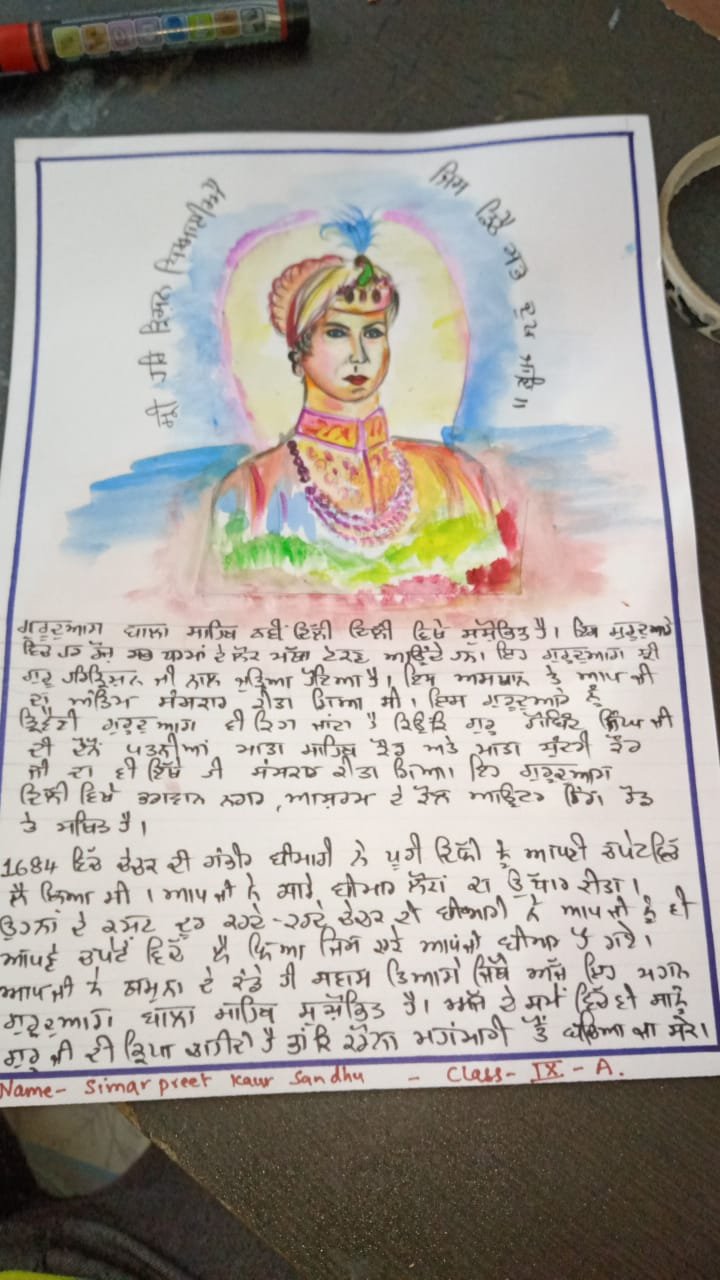 ਸ੍ਰੀ ਹਰਿ ਕ੍ਰਿਸ਼ਨ ਧਿਆਈਐ
ਜਿਸ ਡਿਠੈ ਸਭ ਦੁਖ ਜਾਇ॥
ਗੁਰੂਦੁਆਰਾ ਬਾਲਾ ਸਾਹਿਬ ਨਵੀਂ ਦਿੱਲੀ ਦਿੱਲੀ ਵਿਖੇ ਸੁਸ਼ੋਭਿਤ ਹੈ। ਇਸ ਗੁਰੂਦੁਆਰੇ
ਵਿੱਚ ਹਰ ਰੋਜ਼ ਸਭ ਧਰਮਾਂ ਦੇ ਲੋਕ ਮੱਥਾ ਟੇਕਣ ਆਉਂਦੇ ਹਨ। ਇਹ ਗੁਰੂਦੁਆਰਾ ਸ੍ਰੀ
ਗੁਰੂ ਹਰਿਕ੍ਰਿਸ਼ਨ ਜੀ ਨਾਲ ਜੁੜਿਆ ਹੋਇਆ ਹੈ। ਇਸ ਅਸਥਾਨ ਤੇ ਆਪ ਜੀ
ਦਾ ਅੰਤਿਮ ਸੰਸਕਾਰ ਕੀਤਾ ਗਿਆ ਸੀ। ਇਸ ਗੁਰੂਦੁਆਰੇ ਨੂੰ
ਤ੍ਰਿਵੇਣੀ ਗੁਰੂਦੁਆਰਾ ਵੀ ਕਿਹਾ ਜਾਂਦਾ ਹੈ ਕਿਉਂਕਿ ਗੁਰੂ ਗੋਬਿੰਦ ਸਿੰਘ ਜੀ
ਦੀ ਦੋਨੋਂ ਪਤਨੀਆਂ ਮਾਤਾ ਸਾਹਿਬ ਕੌਰ ਅਤੇ ਮਾਤਾ ਸੁੰਦਰੀ ਕੌਰ
ਜੀ ਦਾ ਵੀ ਇੱਥੇ ਹੀ ਸੰਸਕਾਰ ਕੀਤਾ ਗਿਆ। ਇਹ ਗੁਰੂਦੁਆਰਾ
ਦਿੱਲੀ ਵਿਖੇ ਭਗਵਾਨ ਨਗਰ, ਆਸ਼ਰਮ ਦੇ ਕੋਲ ਆਊਟਰ ਰਿੰਗ ਰੋਡ
ਤੇ ਸਥਿਤ ਹੈ।
1684 ਵਿੱਚ ਚੇਚਕ ਦੀ ਗੰਭੀਰ ਬੀਮਾਰੀ ਨੇ ਪੂਰੀ ਦਿੱਲੀ ਨੂੰ ਆਪਣੀ ਚਪੇਟ ਵਿੱਚ
ਲੈ ਲਿਆ ਸੀ। ਆਪ ਜੀ ਨੇ ਸਾਰੇ ਬੀਮਾਰ ਲੋਕਾਂ ਦਾ ਉੱਧਾਰ ਕੀਤਾ।
ਉਹਨਾਂ ਦੇ ਕਸ਼ਟ ਦੂਰ ਕਰਦੇ-ਕਰਦੇ ਚੇਚਕ ਦੀ ਬੀਮਾਰੀ ਨੇ ਆਪ ਜੀ ਨੂੰ ਵੀ
ਆਪਣੇ ਚਪੇਟੇ ਵਿੱਚ ਲੈ ਲਿਆ ਜਿਸ ਕਾਰਨ ਆਪ ਜੀ ਬੀਮਾਰ ਹੋ ਗਏ।
ਆਪ ਜੀ ਨੇ ਜਮੁਨਾ ਦੇ ਕੰਢੇ ਹੀ ਸਵਾਸ ਤਿਆਗੇ ਜਿੱਥੇ ਅੱਜ ਇਹ ਮਹਾਨ
ਗੁਰੂਦੁਆਰਾ ਬਾਲਾ ਸਾਹਿਬ ਸੁਸ਼ੋਭਿਤ ਹੈ। ਅੱਜ ਦੇ ਸਮੇਂ ਵਿੱਚ ਵੀ ਸਾਨੂੰ
ਗੁਰੂ ਜੀ ਦੀ ਕ੍ਰਿਪਾ ਚਾਹੀਦੀ ਹੈ ਤਾਂ ਕਿ ਕੋਰੋਨਾ ਮਹਾਂਮਾਰੀ ਤੋਂ ਬਚਿਆ ਜਾ ਸਕੇ।
Name- Simarpreet Kaur Sandhu - Class- IX - A.